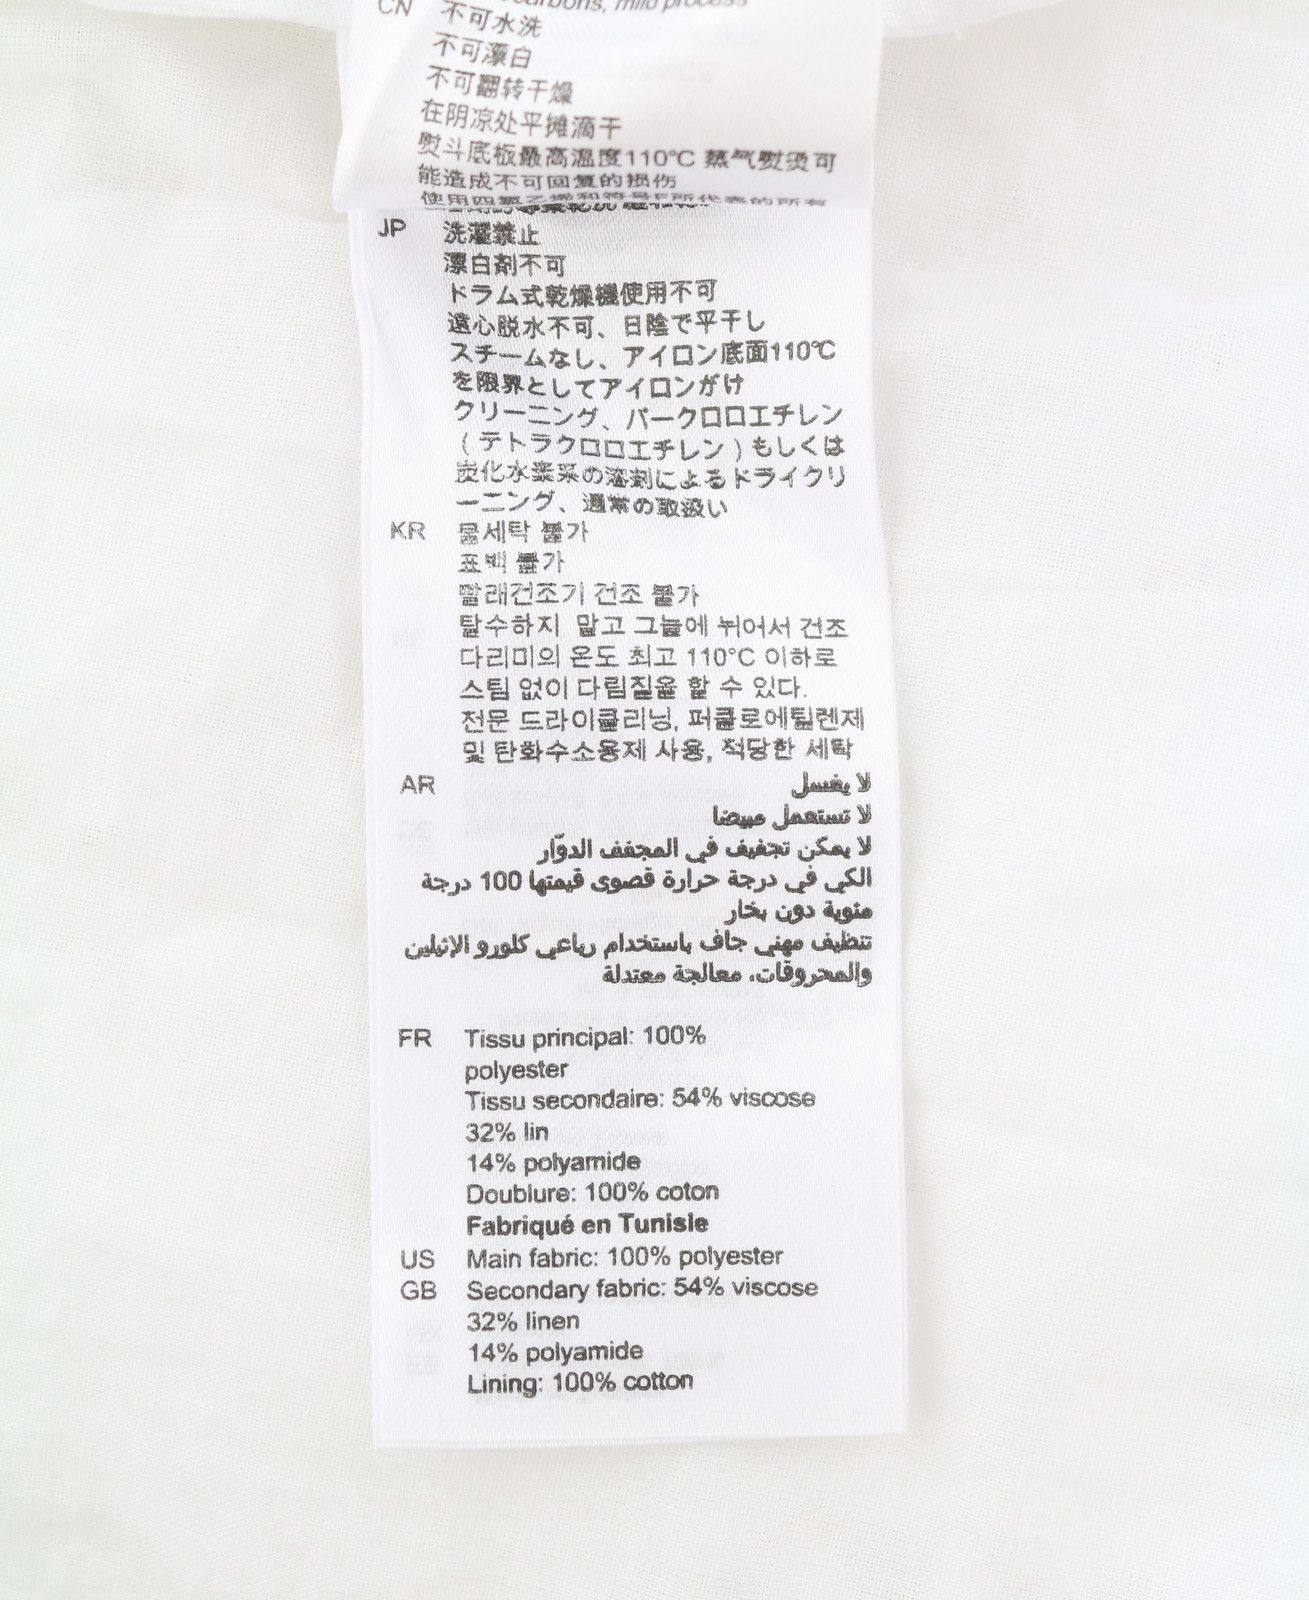 carbons, mild process
CN 不可水洗
不可漂白
不可翻转干燥
在阴凉处平摊滴干
熨斗底板最高温度110°C 蒸气熨烫可
能造成不可回复的损伤
使用四氯乙烯和符号F所代表的所有
JP 洗濯禁止
漂白剤不可
ドラム式乾燥機使用不可
遠心脱水不可、日陰で平干し
スチームなし、アイロン底面110℃
を限界としてアイロンがけ
クリーニング、パークロロエチレン
(テトラクロロエチレン)もしくは
炭化水素系の溶剤によるドライクリ
ーニング、通常の取扱い
KR 물세탁 불가
표백 불가
빨래건조기 건조 불가
탈수하지 말고 그늘에 뉘어서 건조
다리미의 온도 최고 110°C 이하로
스팀 없이 다림질을 할 수 있다.
전문 드라이클리닝, 퍼클로에틸렌제
및 탄화수소용제 사용, 적당한 세탁
AR لا يغسل
لا تستعمل مبيضا
لا يمكن تجفيف في المجفف الدوّار
الكي في درجة حرارة قصوى قيمتها 100 درجة
مئوية دون بخار
تنظيف مهني جاف باستخدام رباعي كلورو الإثيلين
والمحروقات، معالجة معتدلة
FR Tissu principal: 100%
polyester
Tissu secondaire: 54% viscose
32% lin
14% polyamide
Doublure: 100% coton
Fabriqué en Tunisie
US Main fabric: 100% polyester
GB Secondary fabric: 54% viscose
32% linen
14% polyamide
Lining: 100% cotton